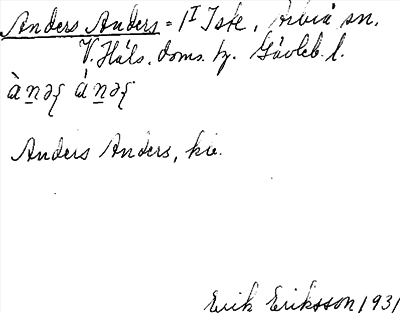 Anders Anders = 1 I Iste, Årbrå sn.
V. Häls. doms. hg. Gävleb. l.
Anders Anders,
Erik Eriksson 1931